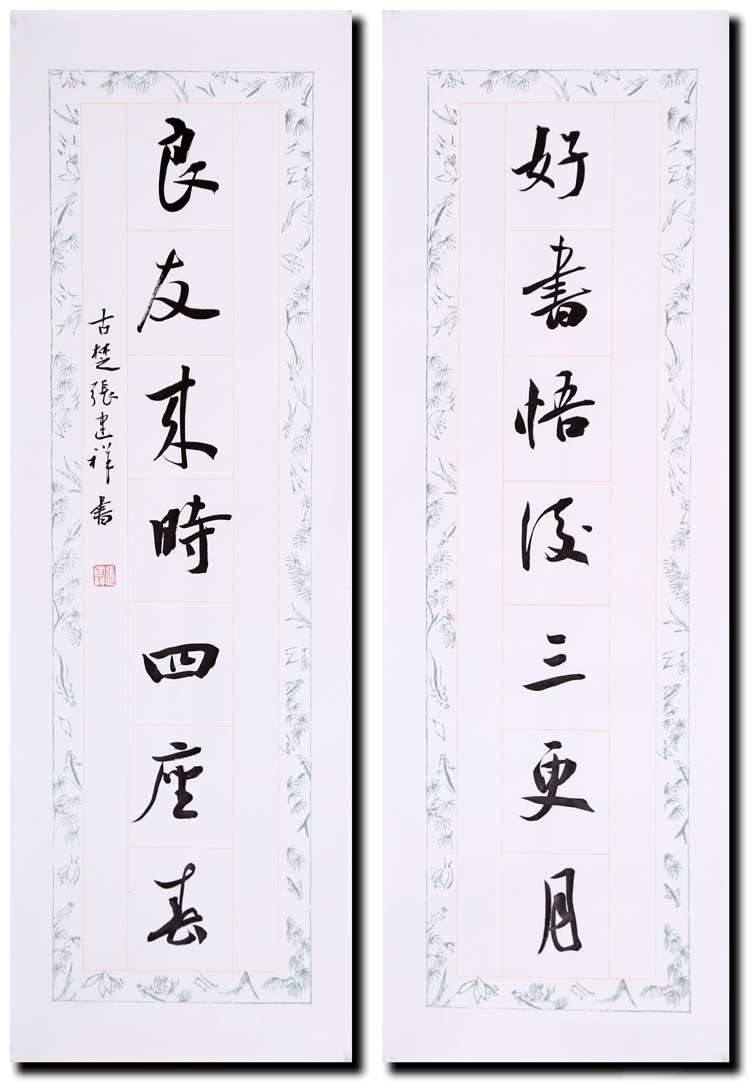 好書悟後三更月
良友來時四座春
古楚張建祥書